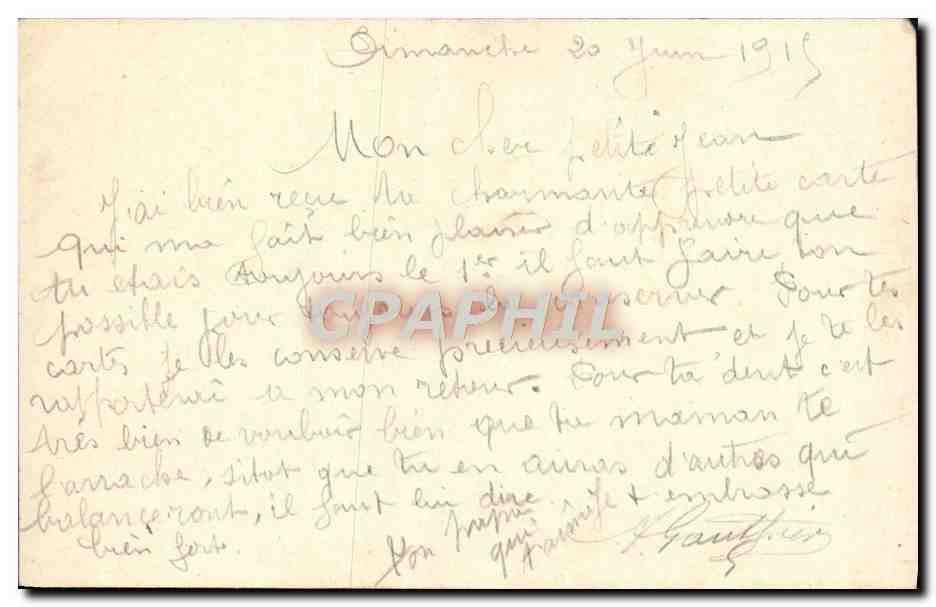 Dimanche 20 Juin 1915
Mon cher petite Jean
J'ai bien reçue ta charmante petite carte
qui ma fait bien plaisir d'apprendre que
tu etais toujours le 1er il faut faire ton
possible pour toujours le conserver. Pour tes
cartes je les conserve precieusement et je te les
rapporterai a mon retour. Pour ta dent c'est
très bien de vouloir bien que ta maman te
l'arrache, sitot que tu en auras d'autres qui
balanceront, il faut lui dire. Je t embrasse
bien fort.
Ton papa
qui t'aime
Gauthier
CPAPHIL